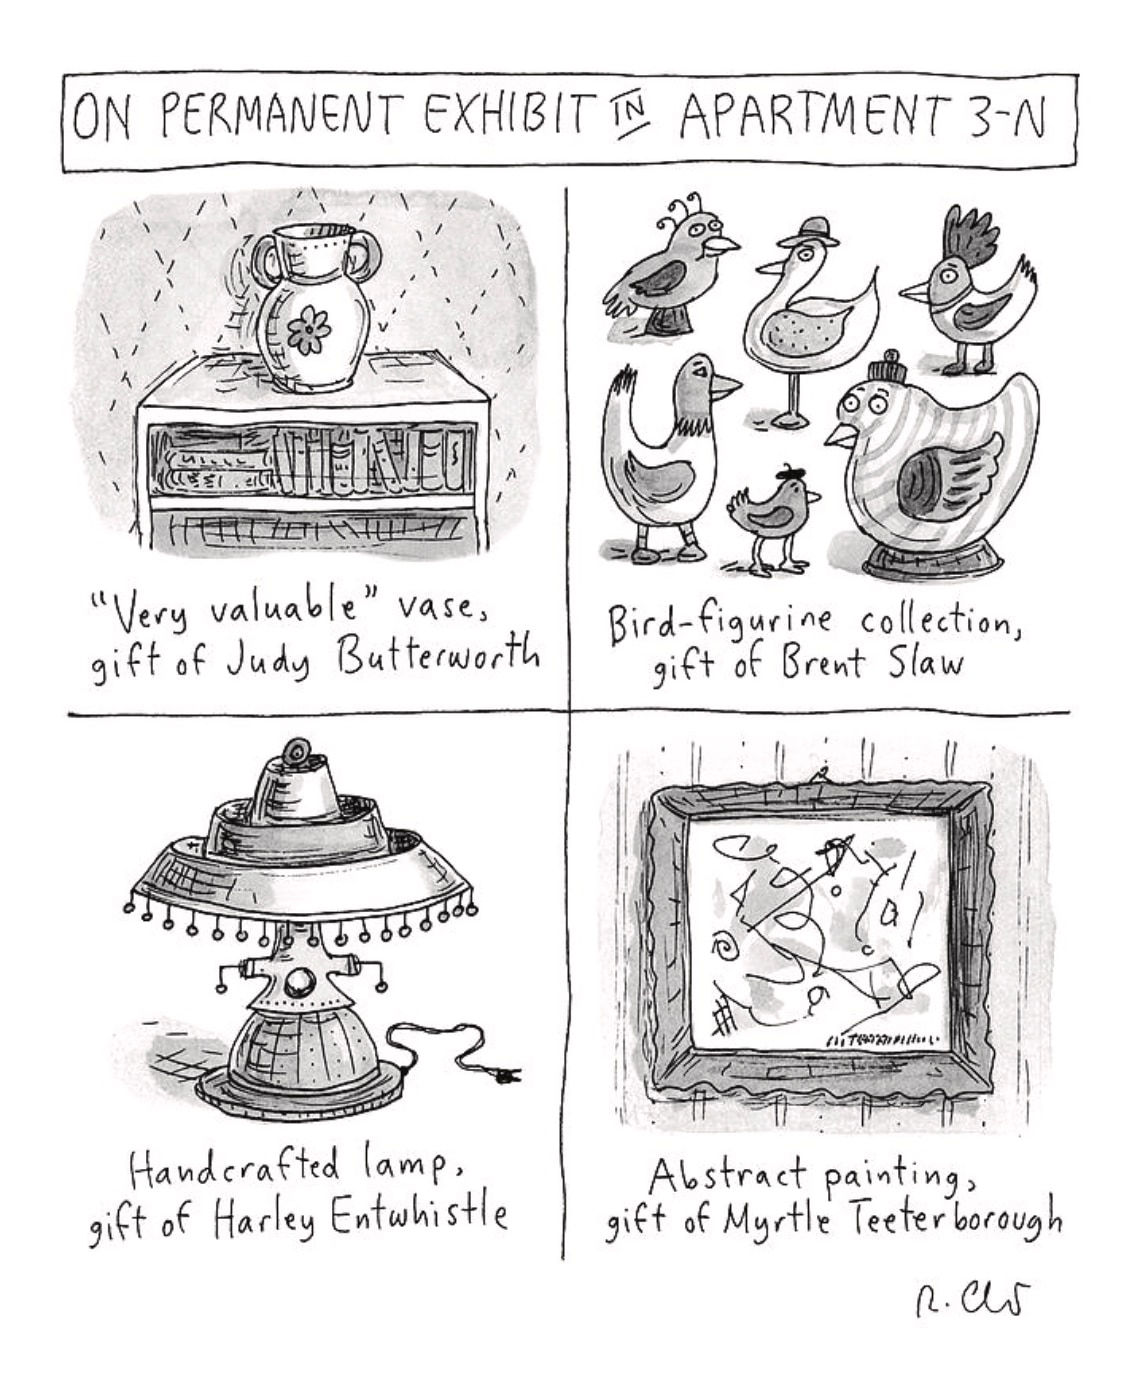 ON PERMANENT EXHIBIT IN APARTMENT 3-N
"Very valuable" vase,
gift of Judy Butterworth
Bird-figurine collection,
gift of Brent Slaw
Handcrafted lamp,
gift of Harley Entwhistle
Abstract painting,
gift of Myrtle Teeterborough